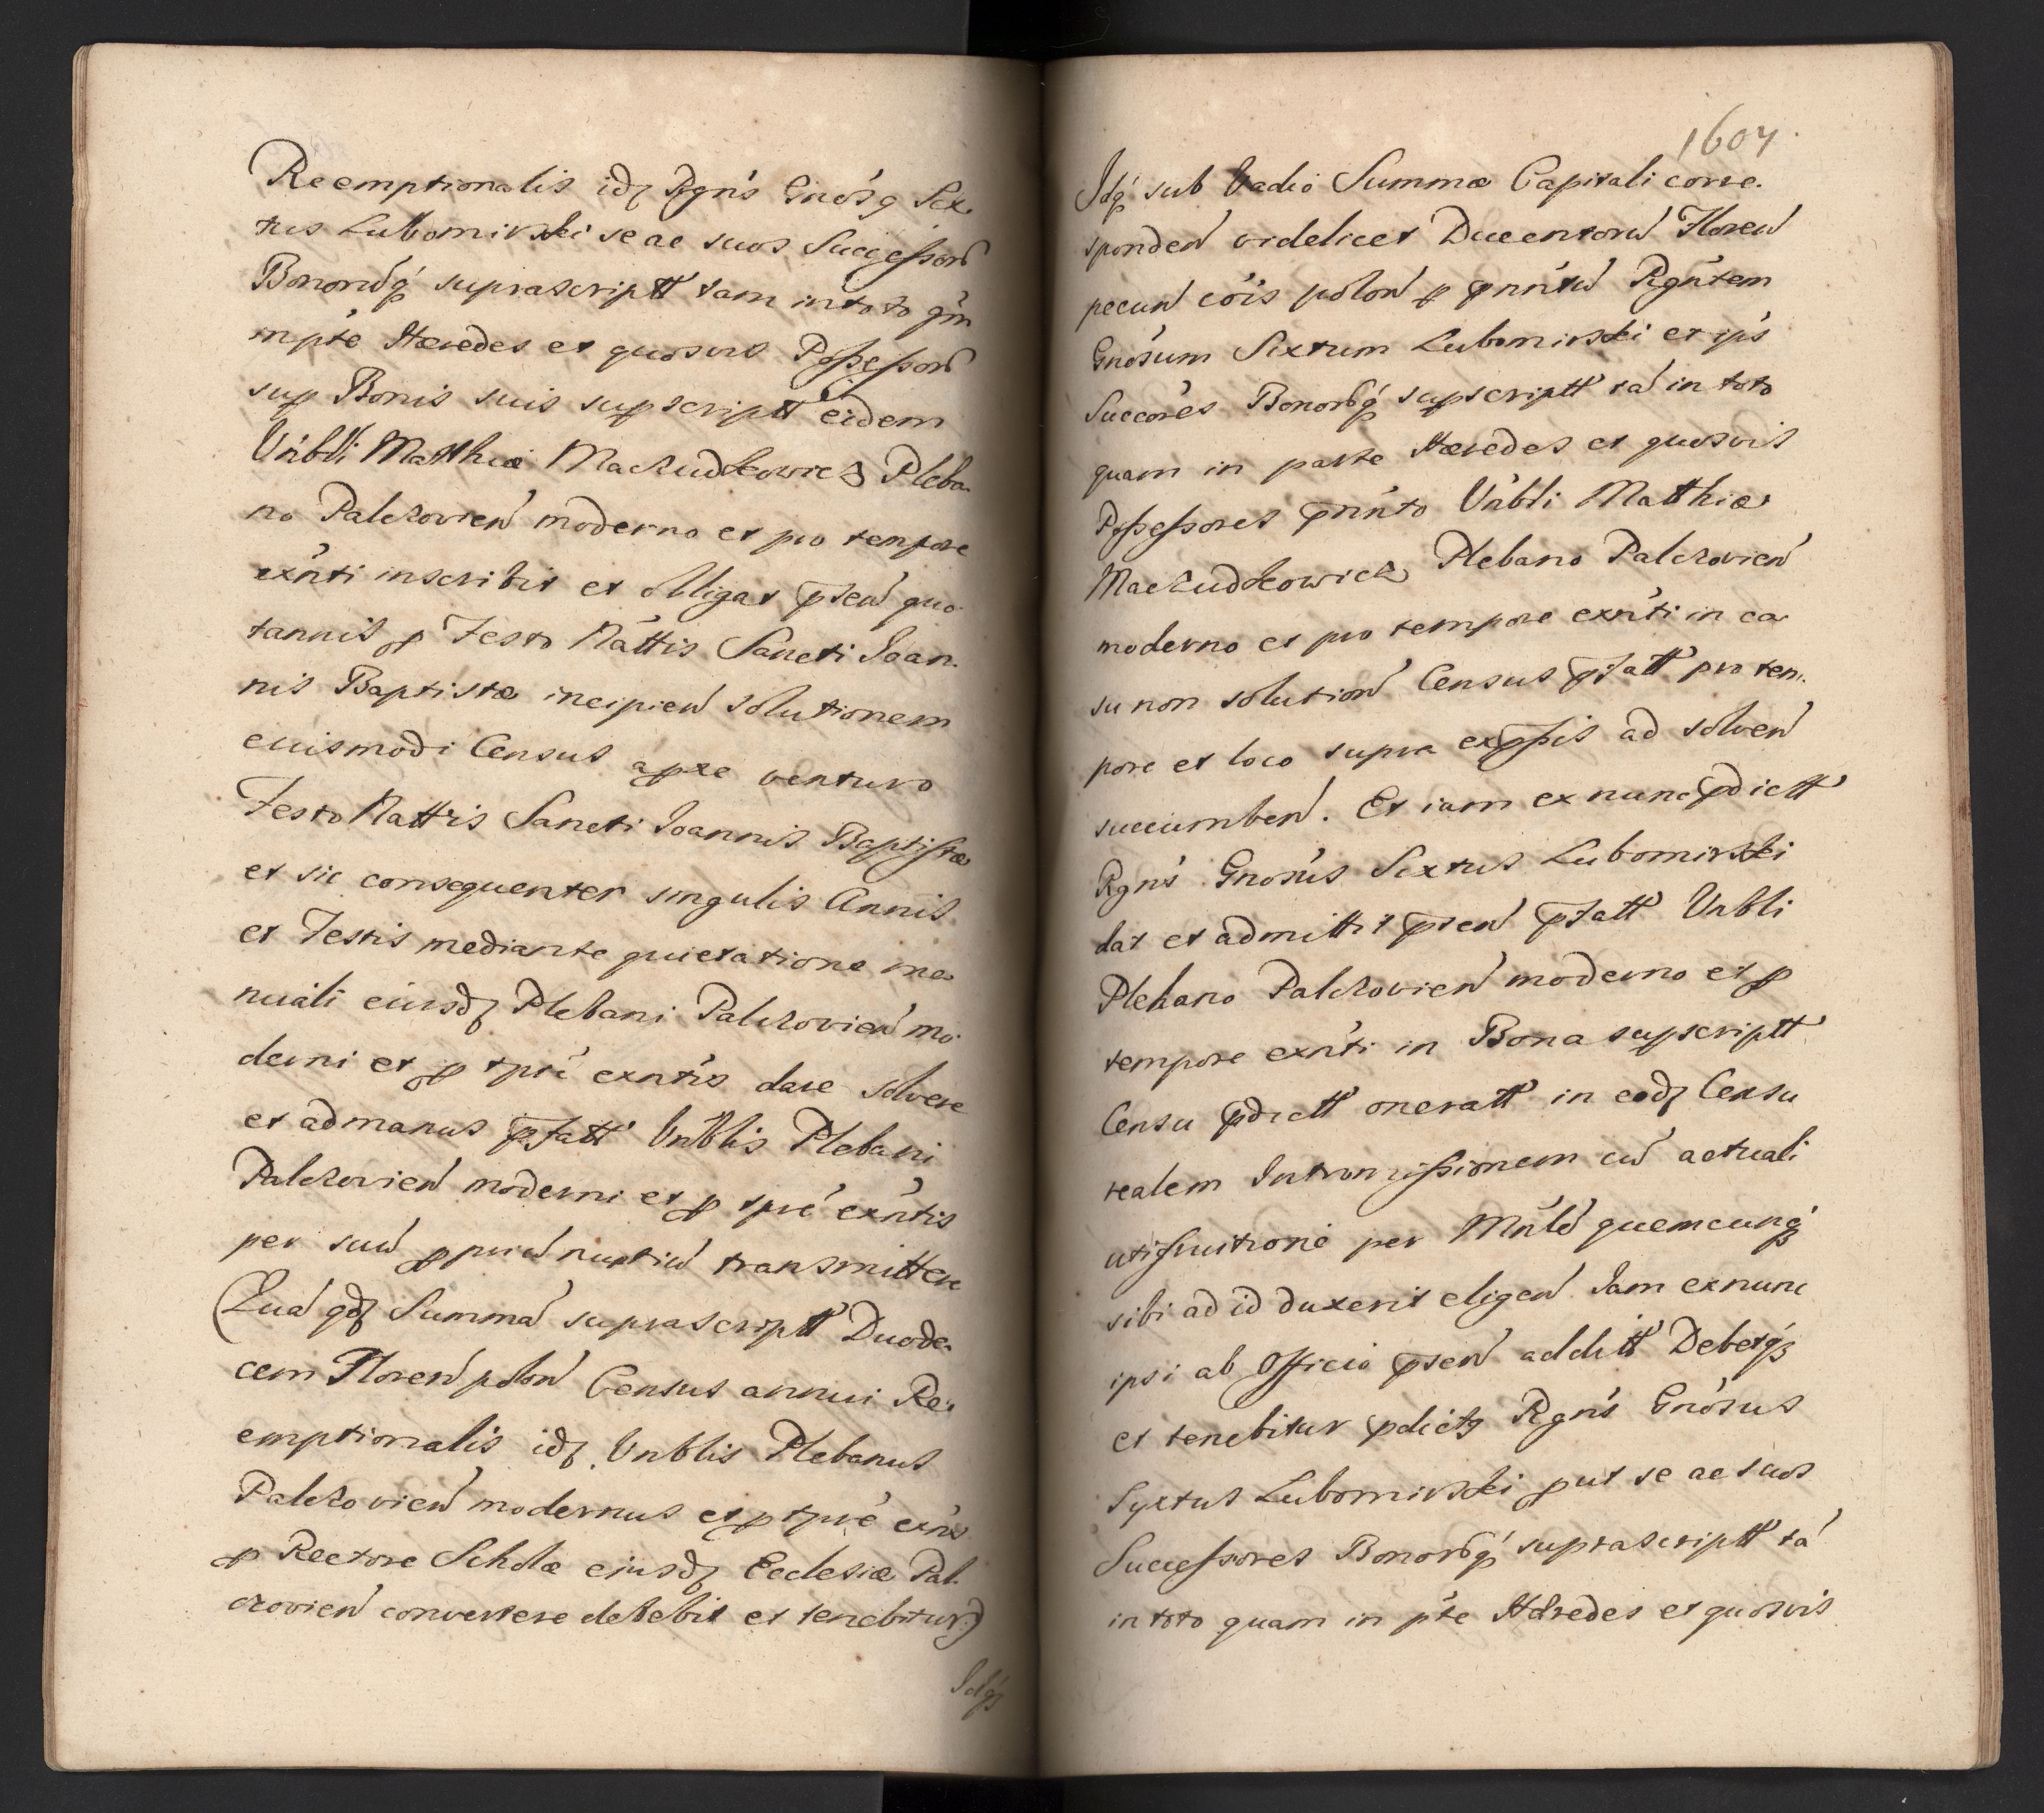 Reemptionalis idq Rgn's Gnós9 Six-
tus Lubomirski se ac suos Successorȏ
Bonorȗq' suprascriptt tam in toto qm̃
in pt̃e Hæredes et quosvis Possessorȏ
sup Bonis suis supscriptt eidem
Vnbli Matthiæ Maczudkowicz Pleba-
no Palczovien̄ moderno et pro tempore
exn̄ti inscribit et obligat p̄sen̄ quo-
tannis p̱ Festo Nat̄tis Sancti Joan-
nis Baptistæ incipien̄ solutionem
euismodi Census a p̱xe venturo
Festo Nattis Sancti Joannis Baptistæ
et sic consequenter singulis Annis
et Festis mediante quietatione ma-
nuáli eiusdq Plebani Palczovien̄ mo-
derni et p̱ tp̄re exn̄tis dare solvere
et ad manus p̄fatt Vnblis Plebani
Palczovien̄ moderni et p̱ tp̄re exn̄tis
per suū p̱priū nuntiū transmittere
(Quā qdq Summā suprascriptt Duode-
cem Floren̄ polon̄ Census annui Re-
emptionalis idq Vnblis Plebanus
Palczovien̄ modernus et p̱ tp̄re exn̄s
p̱ Rectore Scholæ eiusdq Ecclesiæ Pal-
czovien̄ convertere debebit et tenebitur)
Idq3
1607.
Idq' sub Vadio Summæ Capitali corre-
sponden̄ videlicet Ducentorū Floren̄
pecun̄ cōis polon̄ p̱ p̄nn̄tū Rgn̄tem
Gnōsum Sixtum Lubomirski et ip̄s
Succōres Bonorȗq' supscriptt tā in toto
quam in parte Hæredes et quosvis
Possessores p̄nn̄to Vnbli Matthiæ
Maczudkowicz Plebano Palczovien̄
moderno et pro tempore exn̄ti in ca-
su non solution̄ Census p̄fatt pro tem-
pore et loco supra exp̄ssis ad solven̄
succumben̄. Et iam ex nunc p̄dictt
Rgn̄s Gnosūs Sixtus Lubomirski
dat et admittit p̄sen̄ p̄fatt Vnbli
Plebano Palczovien̄ moderno et p̱
tempore exn̄ti in Bona supscriptt
Censu p̄dictt oneratt in eodq Censu
realem Intromissionem cū actuali
utifruitionē per Mn̄lē quemcunq3
sibi ad id duxerit eligen̄. Iam ex nunc
ipsi ab Officio p̄sen̄ additt Debetq3
et tenebitur p̄dict9 Rgn̄s Gnōsus
Syxtus Lubomirski p̱ut se ac suos
Successores Bonorȗq' suprascriptt tā
in toto quam in p̄te Hæredes et quosvis